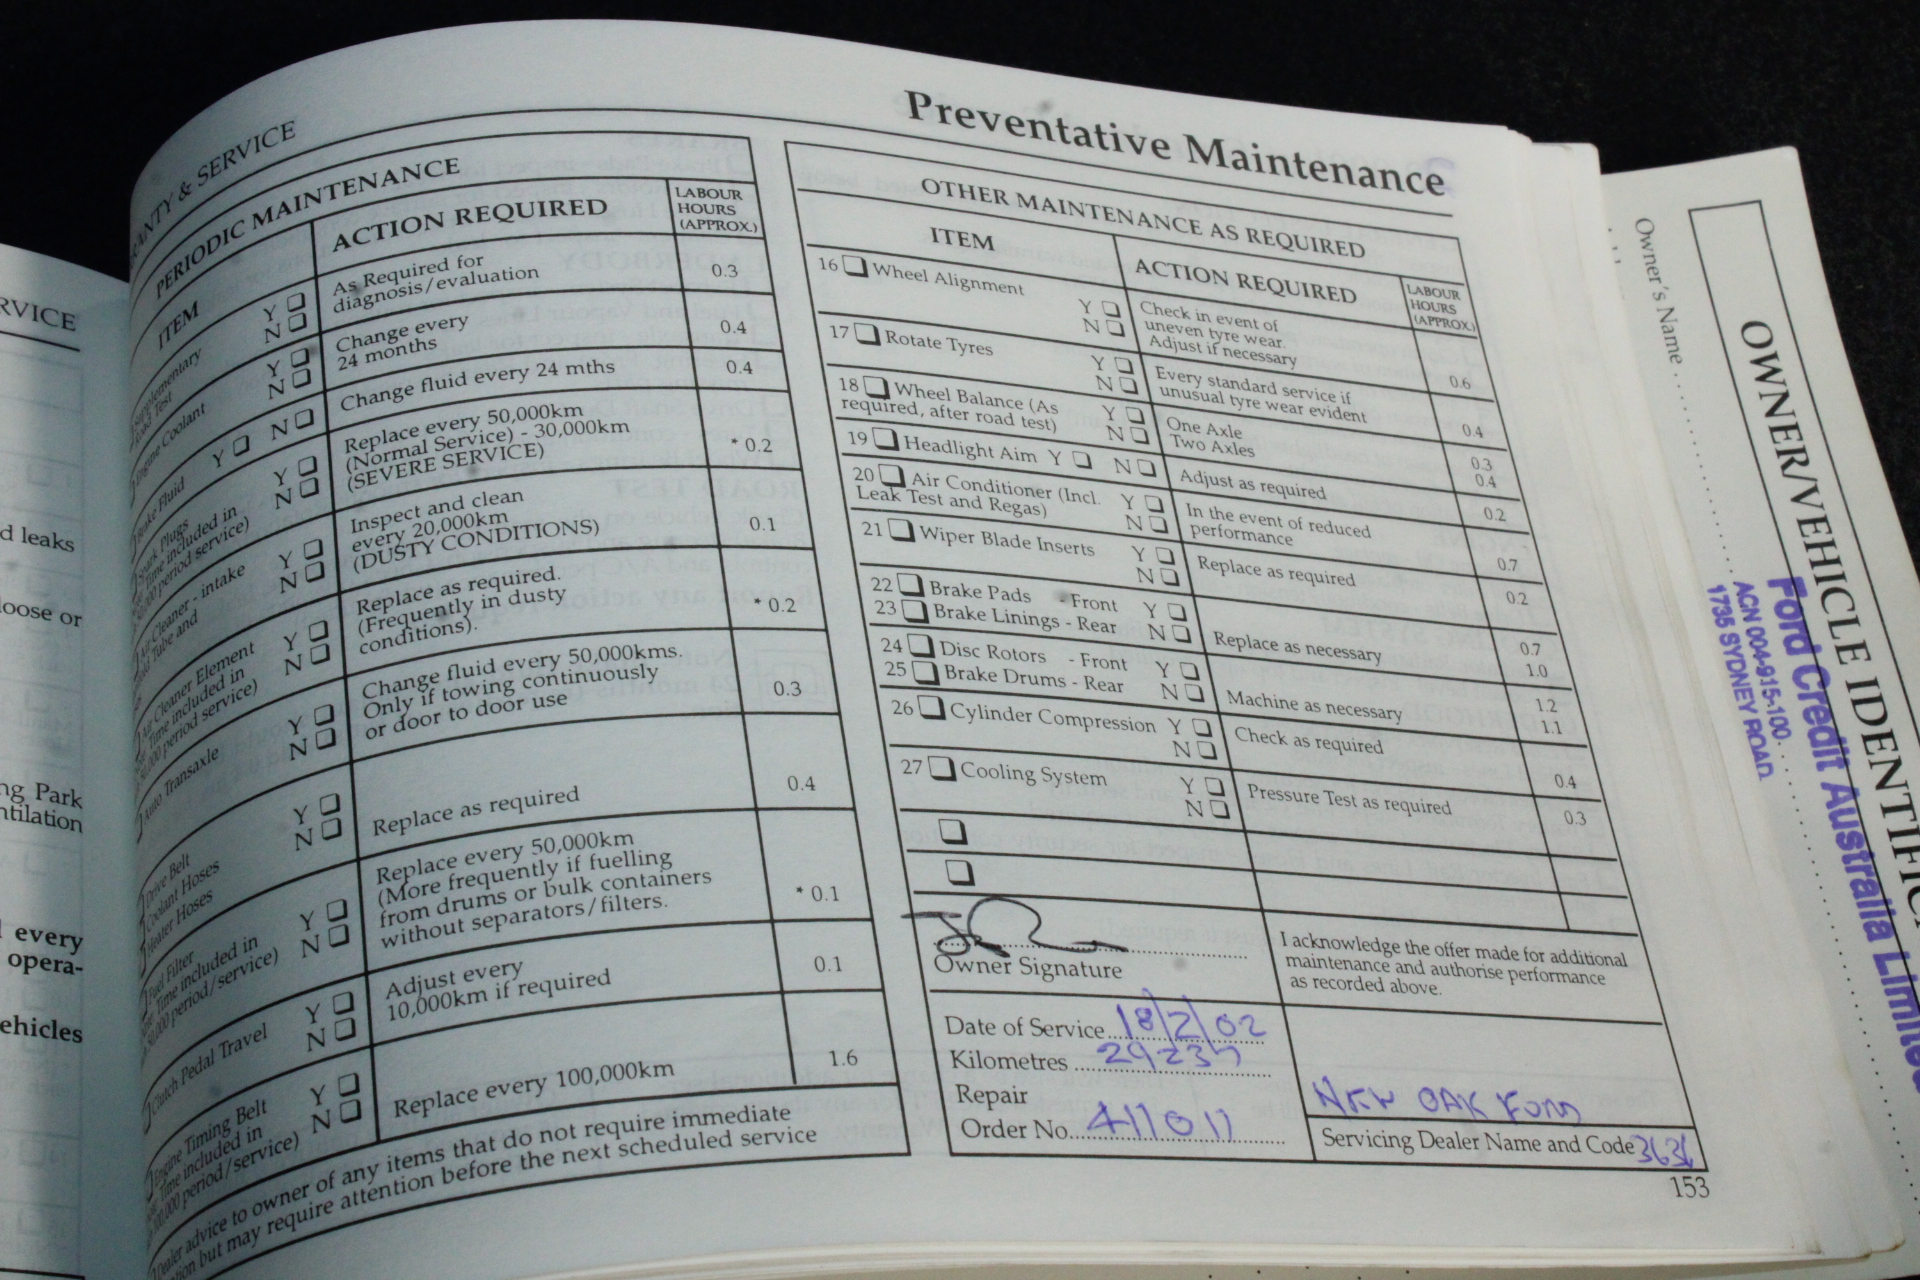 RVICE
d leaks
loose or
ng Park
ntilation
every
opera-
ehicles
& SERVICE
Preventative Maintenance
PERIODIC MAINTENANCE
ITEM
ACTION REQUIRED
LABOUR
HOURS
(APPROX.)
Supplementary
Road Test
Y
N
As Required for
diagnosis/evaluation
0.3
Engine Coolant
Y
N
Change every
24 months
0.4
Brake Fluid Y N
Change fluid every 24 mths
0.4
Spark Plugs
Time included in
period service)
Y
N
Replace every 50,000km
(Normal Service) - 30,000km
(SEVERE SERVICE)
* 0.2
Air Cleaner - intake
Tube and
Y
N
Inspect and clean
every 20,000km
(DUSTY CONDITIONS)
0.1
Air Cleaner Element
Time included in
period service)
Y
N
Replace as required.
(Frequently in dusty
conditions).
* 0.2
Auto Transaxle
Y
N
Change fluid every 50,000kms.
Only if towing continuously
or door to door use
0.3
Drive Belt
Coolant Hoses
Heater Hoses
Y
N
Replace as required
0.4
Fuel Filter
Time included in
period/service)
Y
N
Replace every 50,000km
(More frequently if fuelling
from drums or bulk containers
without separators/filters.
* 0.1
Clutch Pedal Travel
Y
N
Adjust every
10,000km if required
0.1
Engine Timing Belt
Time included in
period/service)
Y
N
Replace every 100,000km
1.6
Dealer advice to owner of any items that do not require immediate
but may require attention before the next scheduled service
OTHER MAINTENANCE AS REQUIRED
ITEM
ACTION REQUIRED
LABOUR
HOURS
(APPROX.)
16 Wheel Alignment
Y
N
Check in event of
uneven tyre wear.
Adjust if necessary
0.6
17 Rotate Tyres
Y
N
Every standard service if
unusual tyre wear evident
0.4
18 Wheel Balance (As
required, after road test)
Y
N
One Axle
Two Axles
0.3
0.4
19 Headlight Aim Y N
Adjust as required
0.2
20 Air Conditioner (Incl.
Leak Test and Regas)
Y
N
In the event of reduced
performance
0.7
21 Wiper Blade Inserts
Y
N
Replace as required
0.2
22 Brake Pads - Front
23 Brake Linings - Rear
Y
N
Replace as necessary
0.7
1.0
24 Disc Rotors - Front
25 Brake Drums - Rear
Y
N
Machine as necessary
1.2
1.1
26 Cylinder Compression
Y
N
Check as required
0.4
27 Cooling System
Y
N
Pressure Test as required
0.3
Owner Signature
I acknowledge the offer made for additional
maintenance and authorise performance
as recorded above.
Date of Service 18/2/02
Kilometres 29237
Repair
Order No. 411011
NEW OAK FORD
Servicing Dealer Name and Code 3636
153
Owner's Name
OWNER/VEHICLE IDENTIFIC
Ford Credit Australia Limited
ACN 004-915-100
1735 SYDNEY ROAD